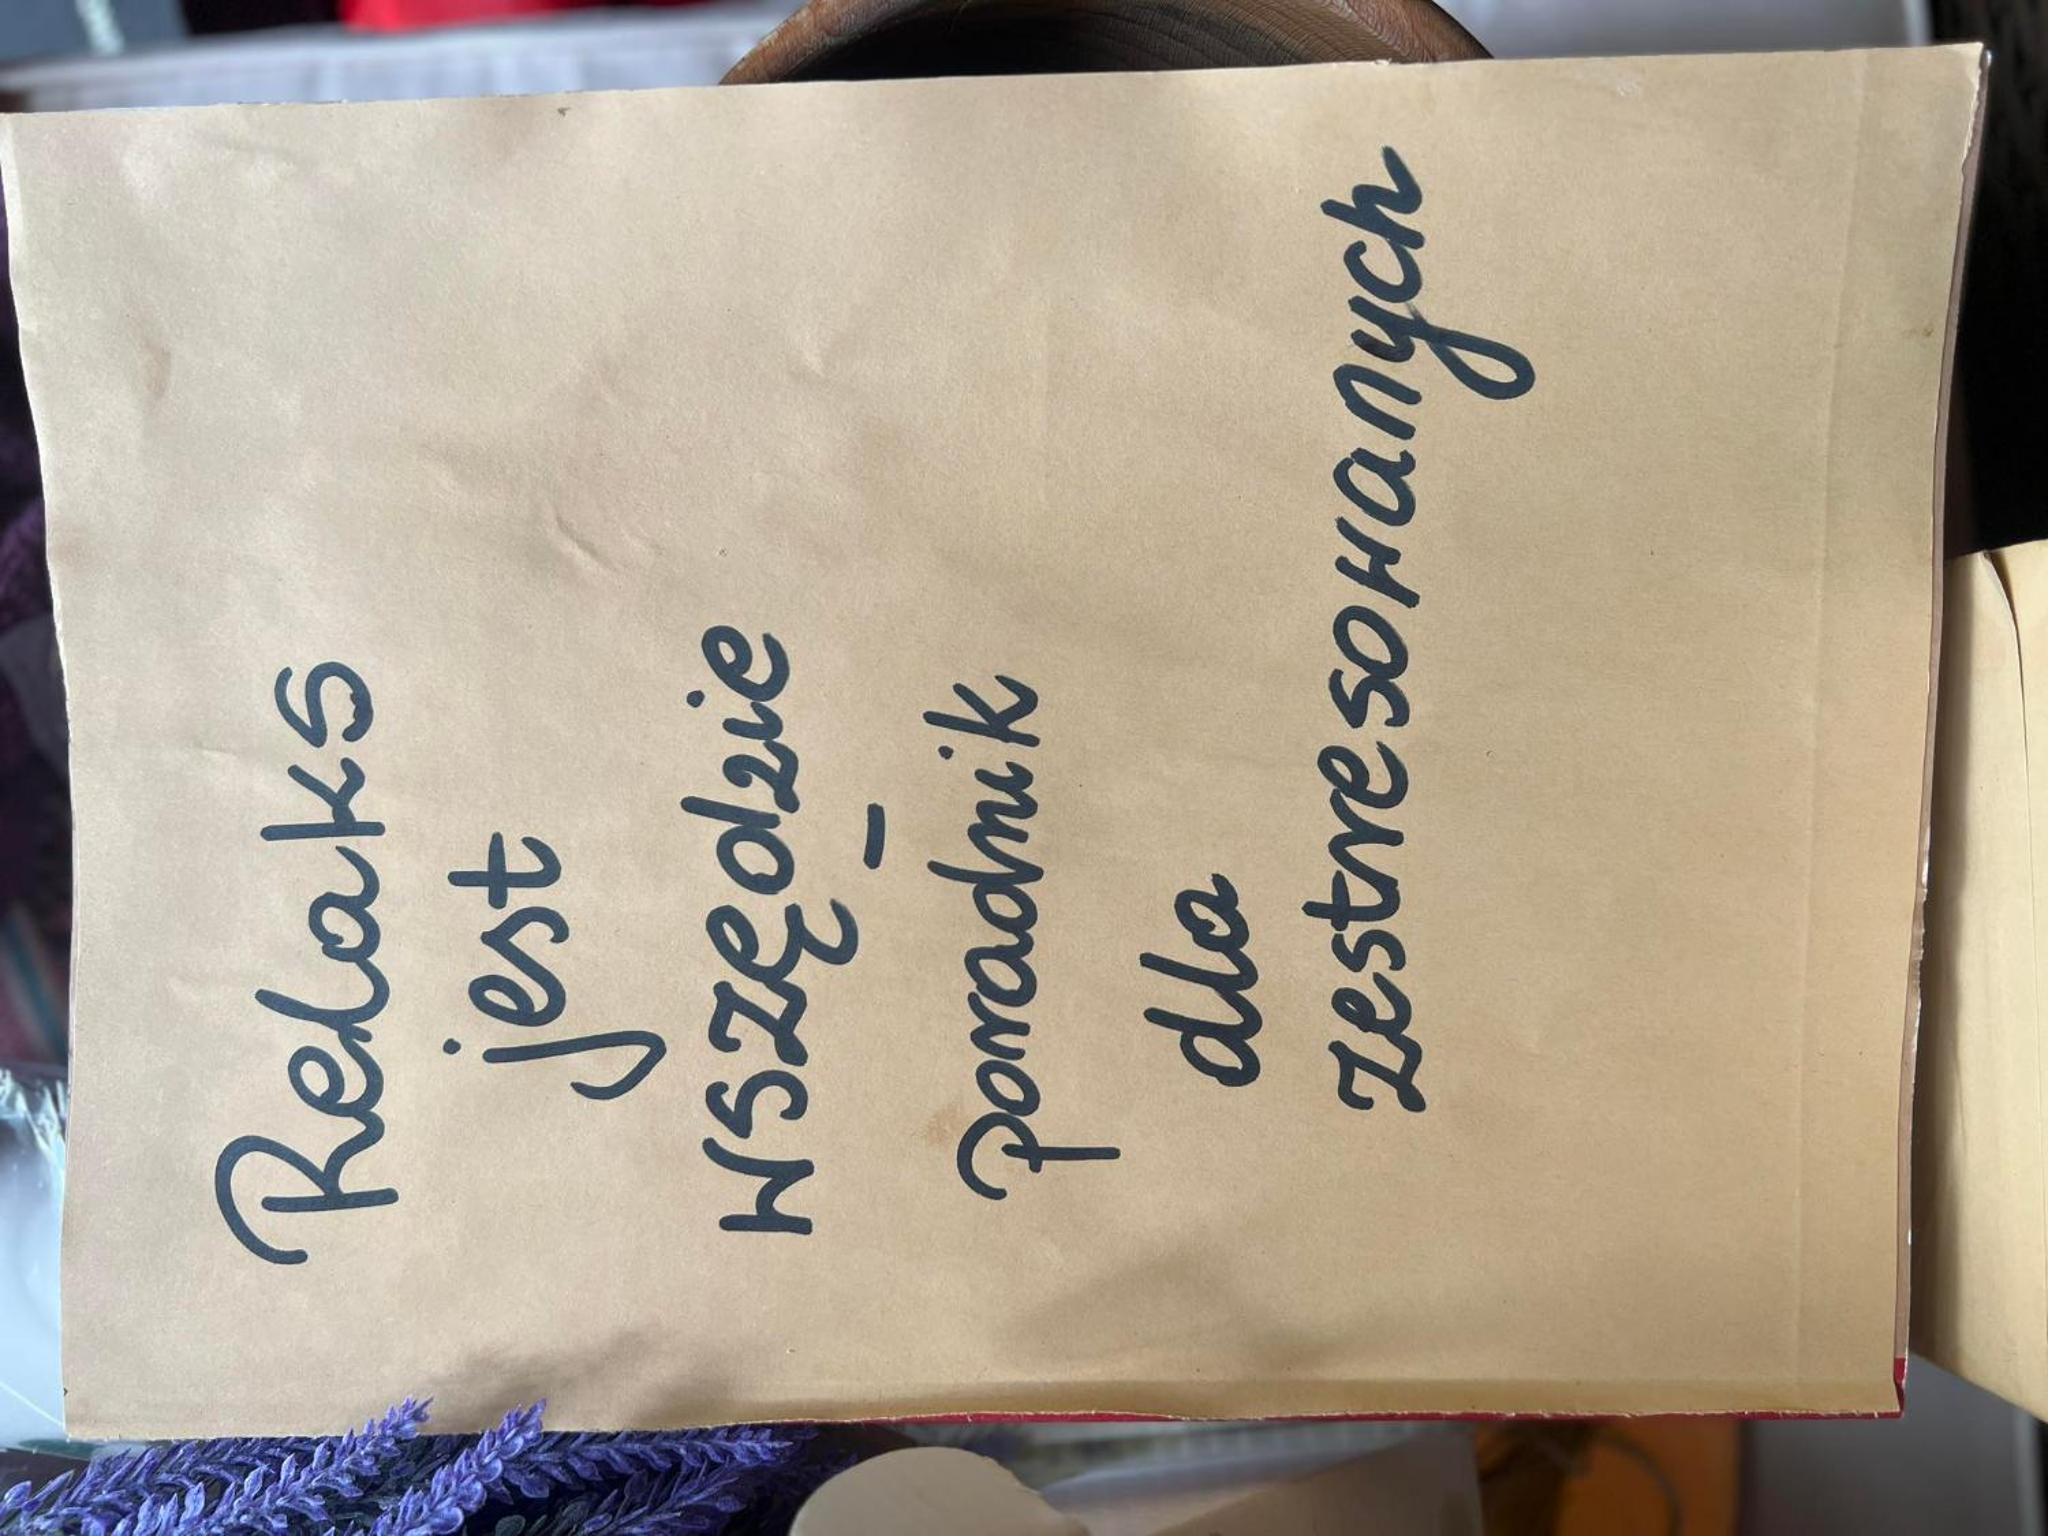 Relaks
jest
wszędzie
-
poradnik
dla
zestresowanych